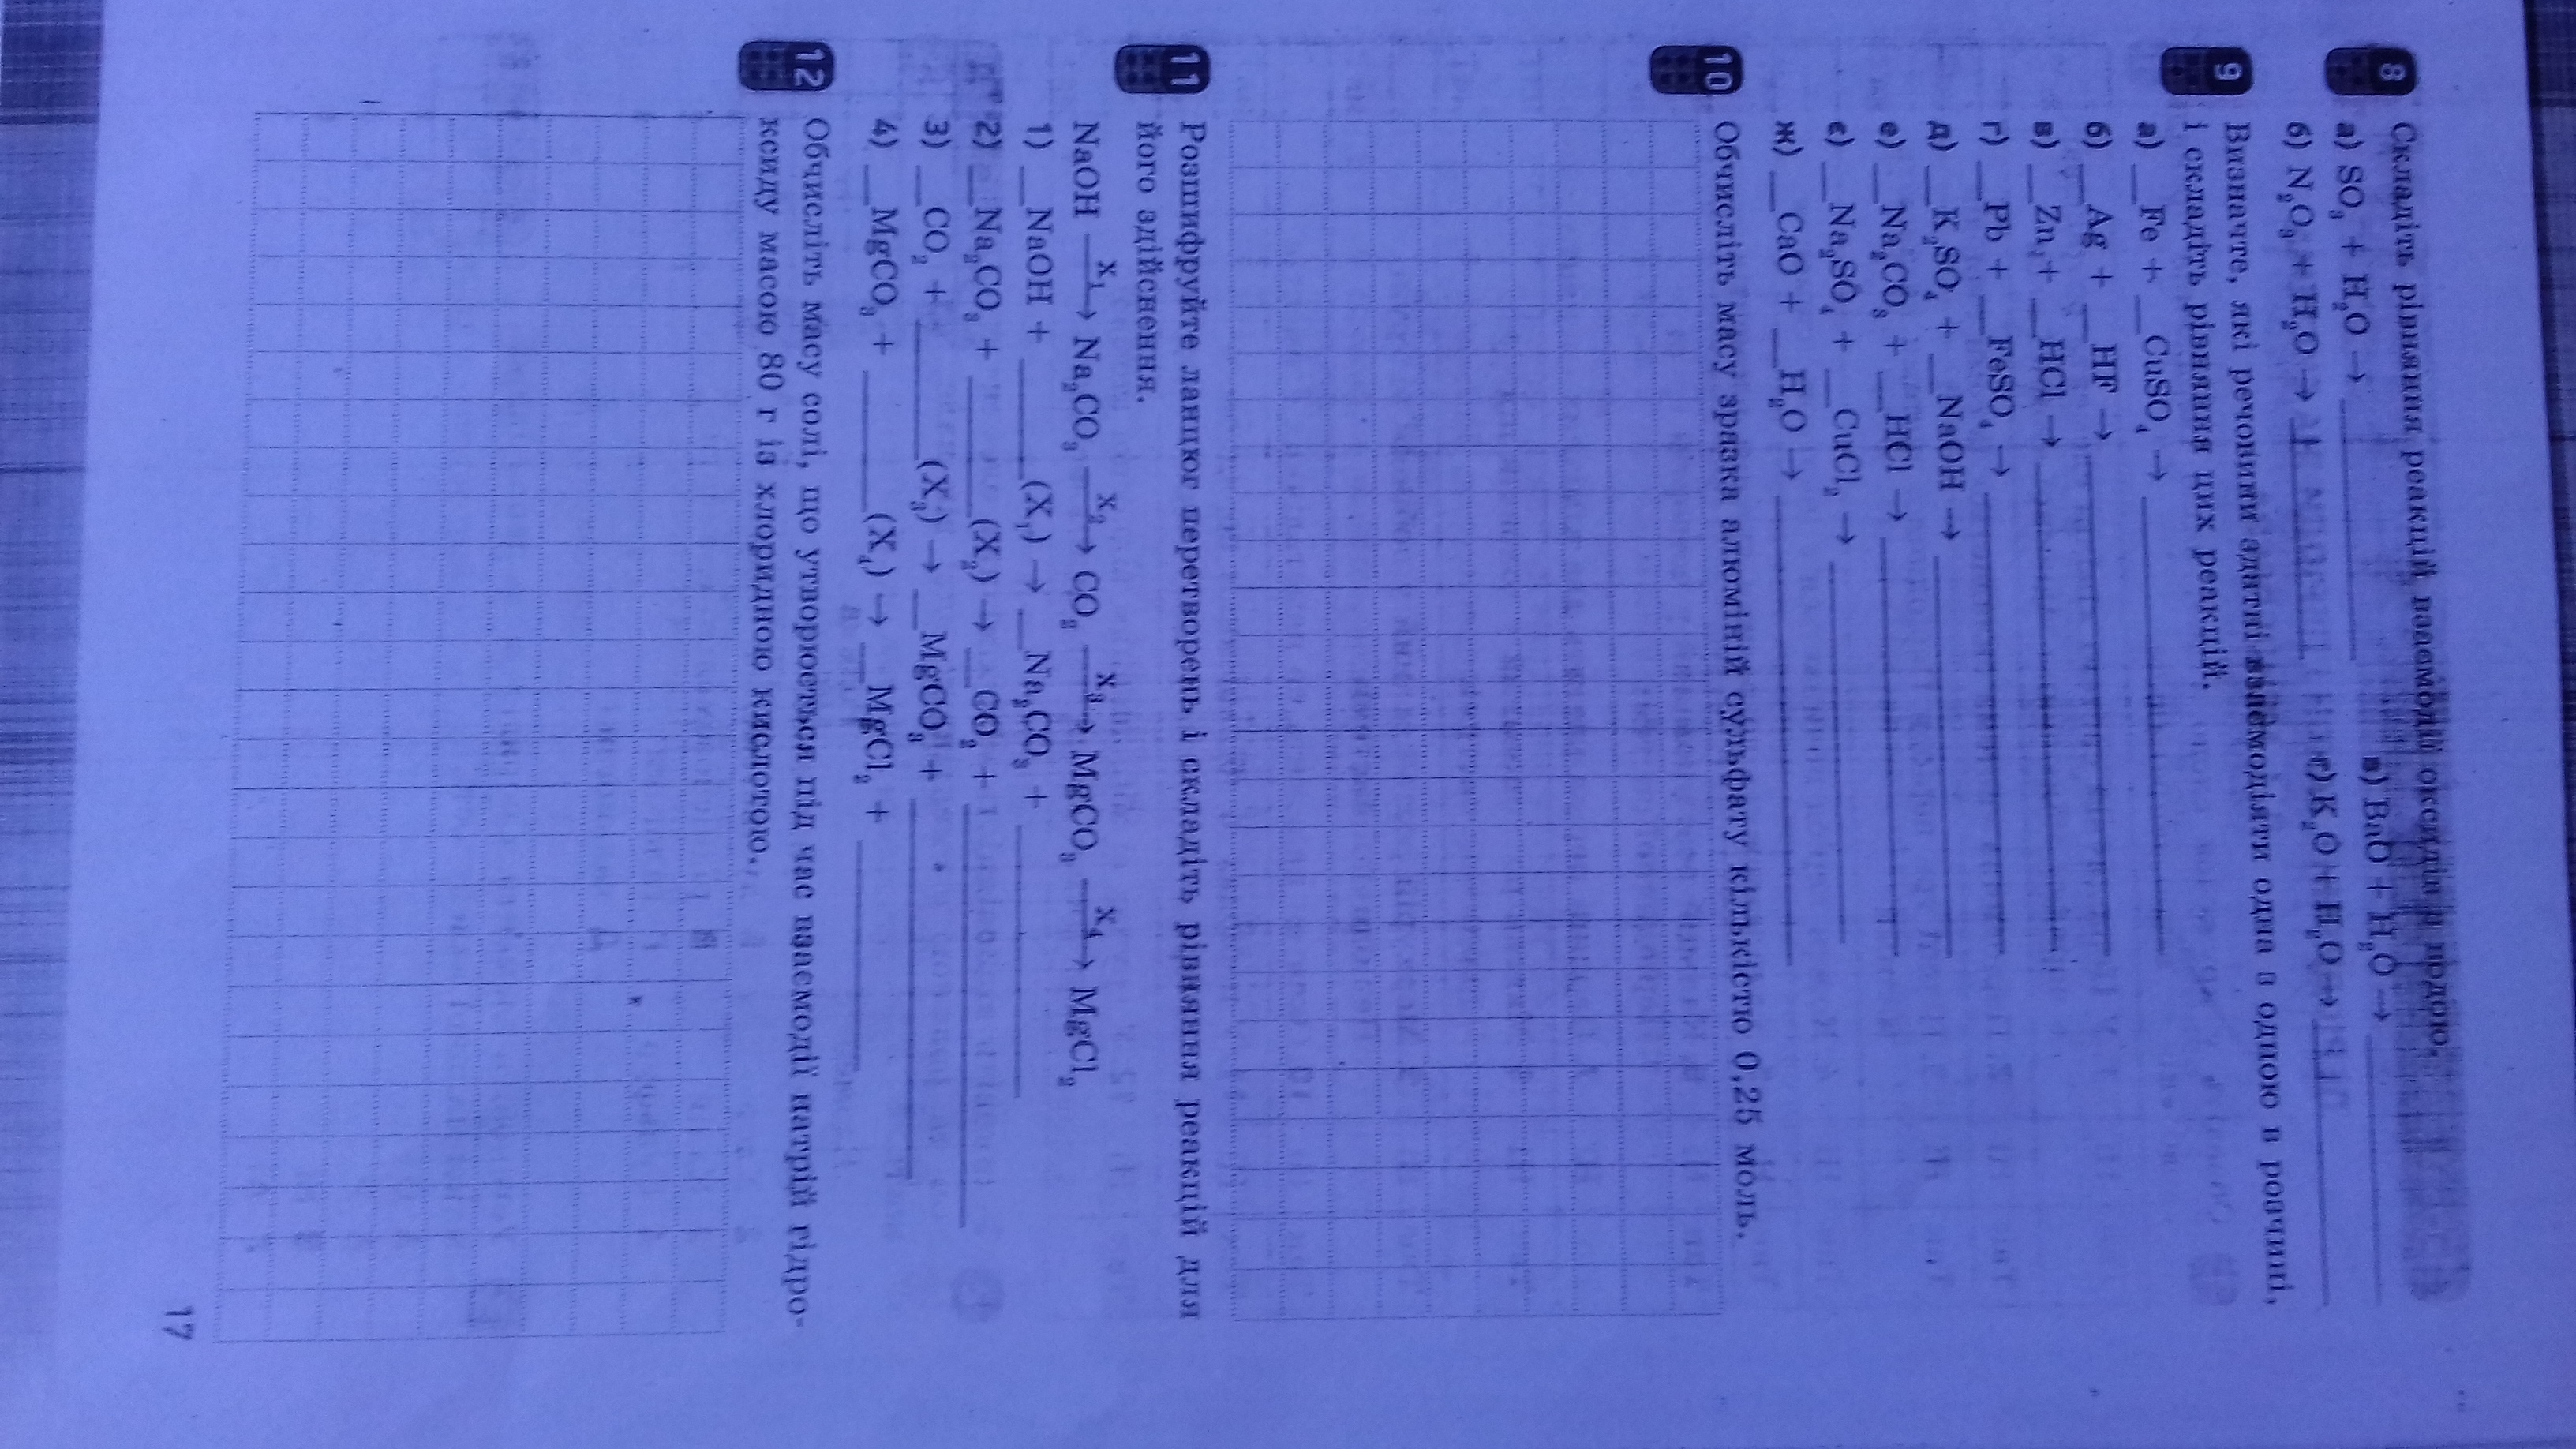 8 Складіть рівняння реакцій взаємодії оксидів з водою.
а) SO₃ + H₂O → ______ в) BaO + H₂O → ______
б) N₂O₃ + H₂O → ______ г) K₂O + H₂O → ______
9 Визначте, які речовини здатні взаємодіяти одна з одною в розчині,
і складіть рівняння цих реакцій.
а) __Fe + __CuSO₄ → ______
б) __Ag + __HF → ______
в) __Zn + __HCl → ______
г) __Pb + __FeSO₄ → ______
д) __K₂SO₄ + __NaOH → ______
е) __Na₂CO₃ + __HCl → ______
є) __Na₂SO₄ + __CuCl₂ → ______
ж) __CaO + __H₂O → ______
10 Обчисліть масу зразка алюміній сульфату кількістю 0,25 моль.
11 Розшифруйте ланцюг перетворень і складіть рівняння реакцій для
його здійснення.
NaOH —X₁→ Na₂CO₃ —X₂→ CO₂ —X₃→ MgCO₃ —X₄→ MgCl₂
1) __NaOH + ______(X₁) → __Na₂CO₃ + ______
2) __Na₂CO₃ + ______(X₂) → __CO₂ + ______
3) __CO₂ + ______(X₃) → __MgCO₃ + ______
4) __MgCO₃ + ______(X₄) → __MgCl₂ + ______
12 Обчисліть масу солі, що утворюється під час взаємодії натрій гідро-
ксиду масою 80 г із хлоридною кислотою.
17